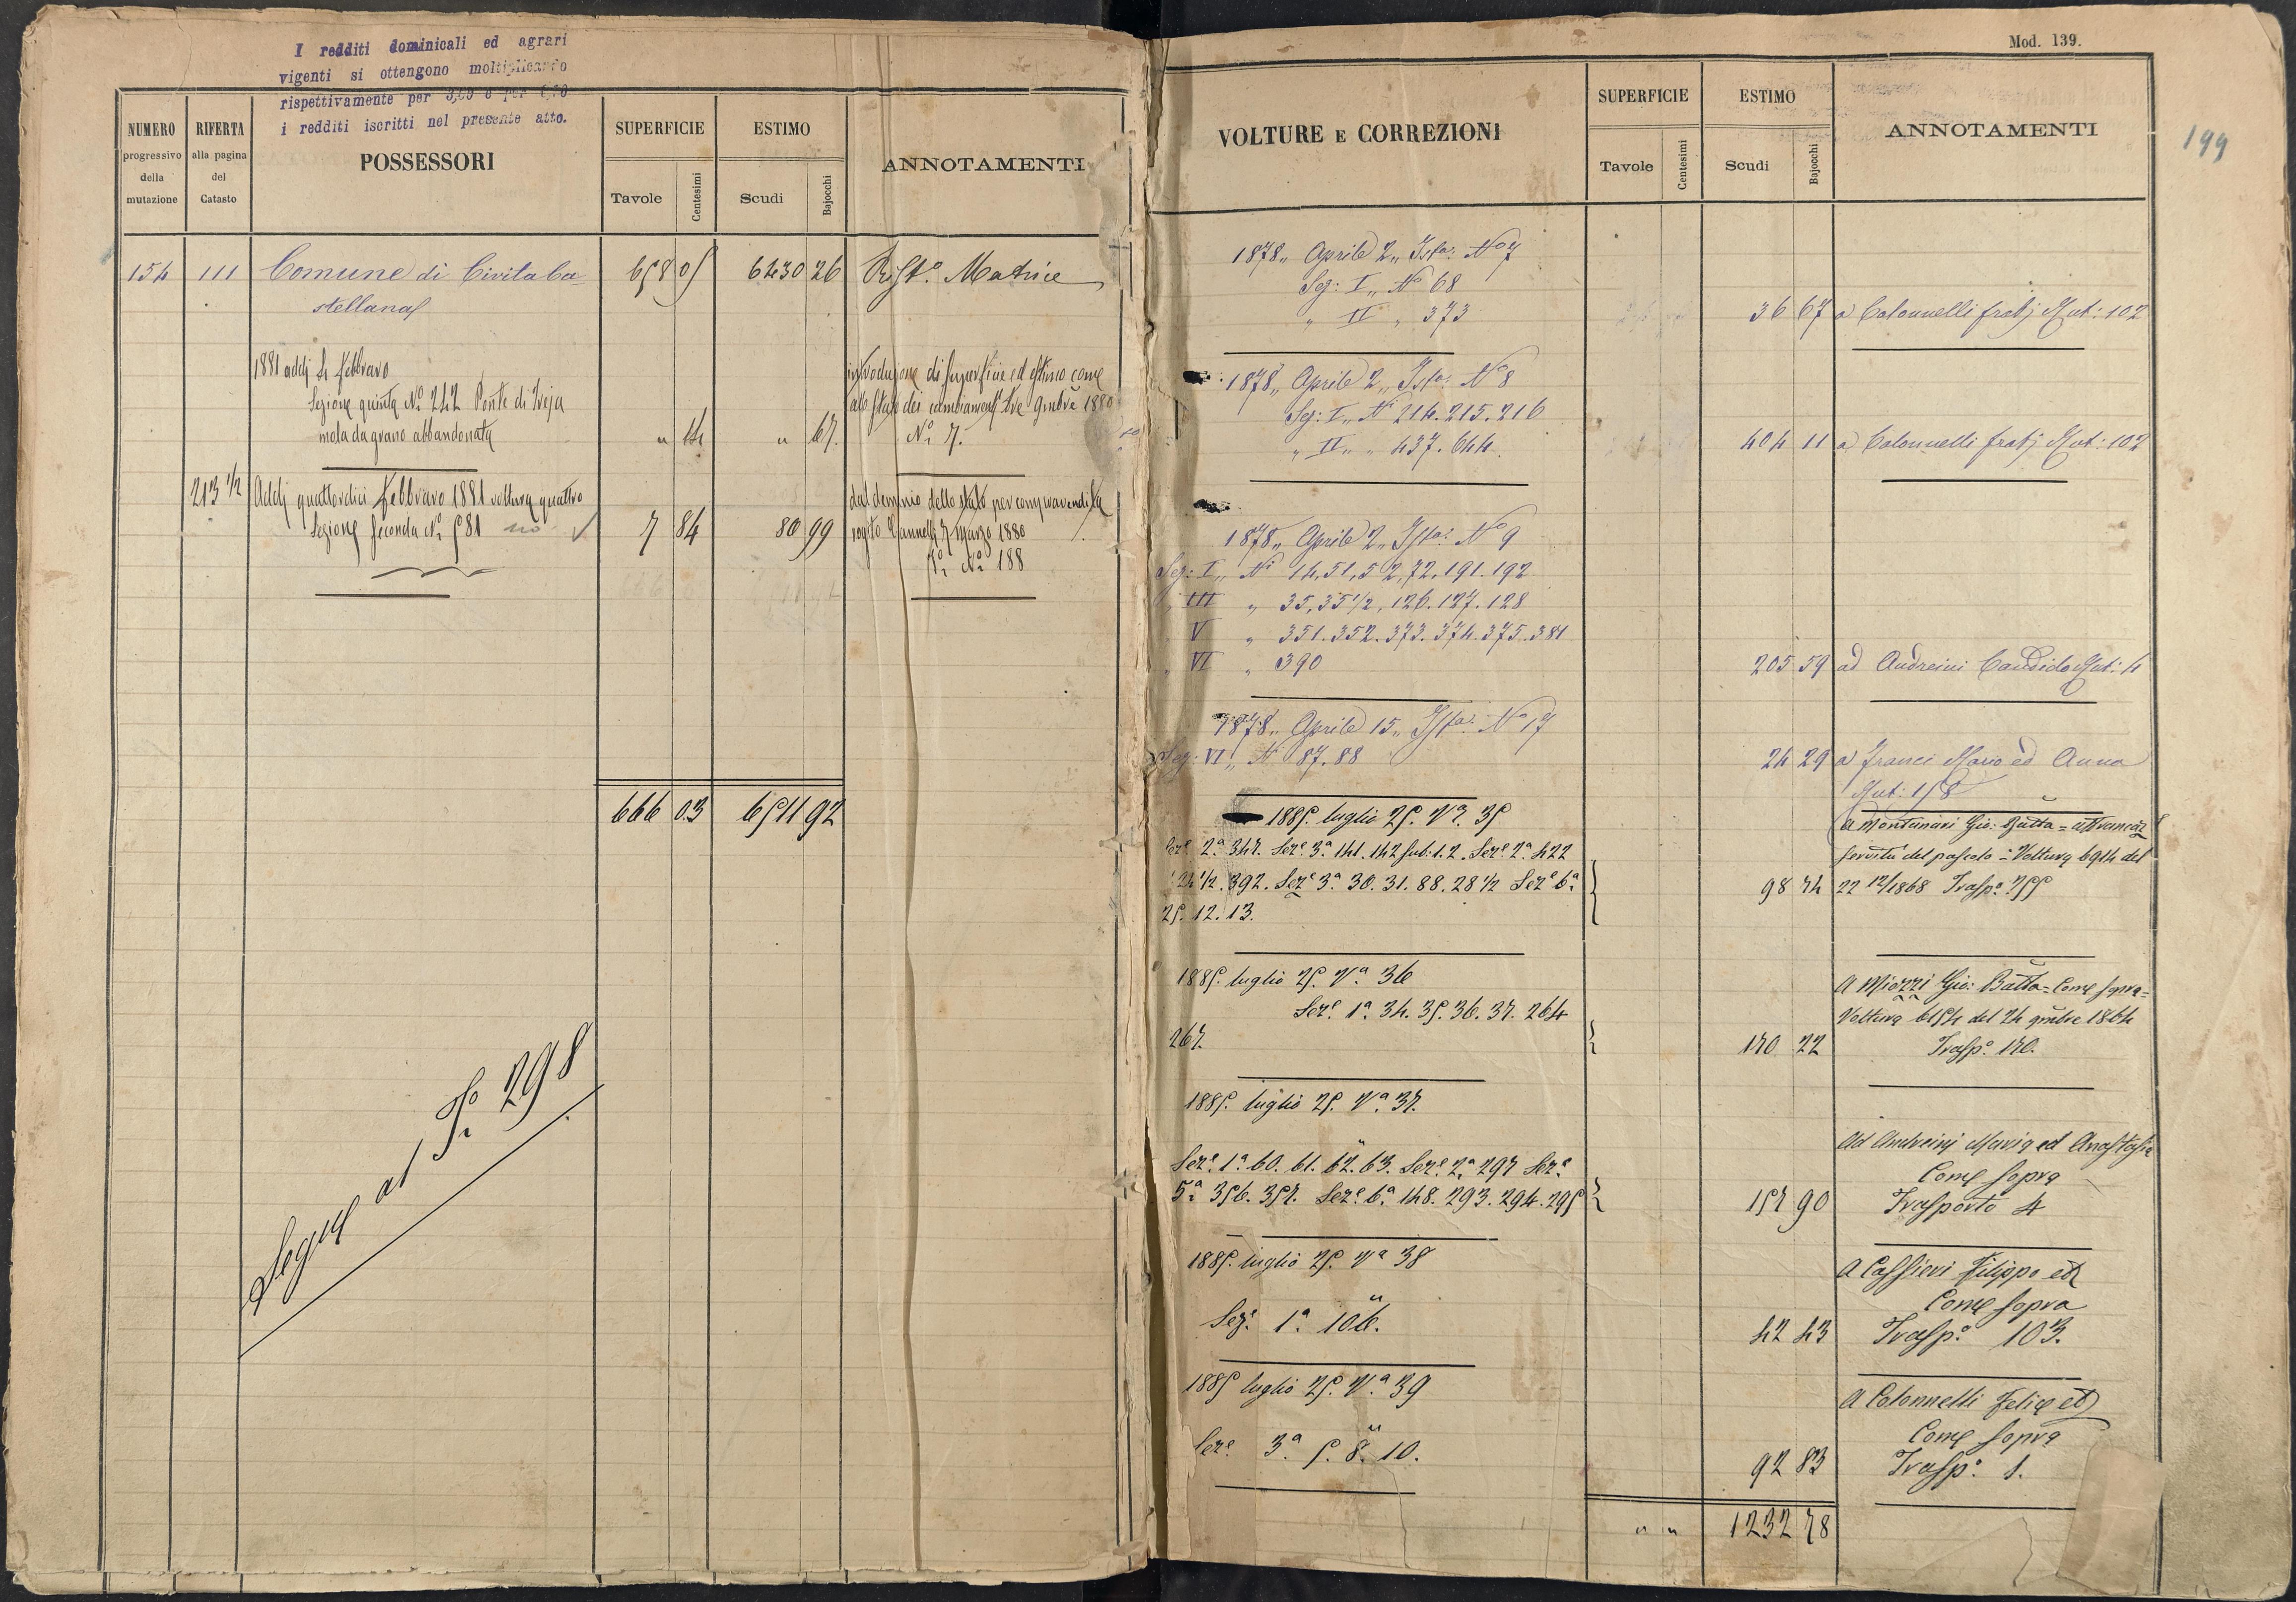 I redditi dominicali ed agrari
vigenti si ottengono moltiplicando
rispettivamente per
i redditi iscritti nel presente atto.
NUMERO
progressivo
della
mutazione
RIFERTA
alla pagina
del
Catasto
POSSESSORI
SUPERFICIE
Tavole
Centesimi
ESTIMO
Scudi
Bajocchi
ANNOTAMENTI
154 111 Comune di Civitaca- 658 05 6430 26 Rist.º Matrice
stellana
1881 addì 4 febbraro introduzione di superficie ed estimo come
Sezione quinta Nº 242 Ponte di Treja allo stato dei cambiamenti tre 9mbre 1880
mola da grano abbandonata " 14 " 67. Nº 7.
213 1/2 Addì quattordici febbraro 1881 voltura quattro dal demanio dello stato per compravendita
Sezione seconda Nº 581 no 7 84 80 99 rogito 7 marzo 1880
Nº 188
666 03 6511 92
Segue al Fº 298
Mod. 139.
199
VOLTURE E CORREZIONI
SUPERFICIE
Tavole
Centesimi
ESTIMO
Scudi
Bajocchi
ANNOTAMENTI
1878,, Aprile 2,, Ista: Nº 7
Sez: I,, Nº 68
" II " 373 36 67 a Colonnelli frat.j Mut: 102
1878,, Aprile 2,, Ista: Nº 8
Sez: I,, Nⁱ 214. 215. 216
" II,, " 437. 644. 404 11 a Colonnelli frat.j Mut: 102
1878,, Aprile 2,, Ista: Nº 9
Sez: I,, Nⁱ 14, 51, 52, 72, 191. 192
" III " 35, 35 1/2, 126. 127. 128
" V " 351. 352. 373. 374. 375. 381
" VI " 390 205 59 ad Andreini Candido Mut: 4
1878,, Aprile 15,, Ista: Nº 17
Sez: VI,, Nⁱ 87. 88 24 29 a Franci Mario ed Anna
Mut: 158
1885. luglio 25. Vª. 35 a Montanari Gio: Batta = affrancaz
Sez.e 2ª 347. Sez.e 3ª 141. 142 sub: 1. 2. Sez.e 2ª 422 servitù del pascolo = Voltura 6914 del
24 1/2. 392. Sez.e 3ª 30. 31. 88. 28 1/2 Sez.e 6ª 98 74 22 12/1868 Trasp.º 255
25. 12. 13.
1885. luglio 25. Vª. 36 A Miozzi Gio: Batta = Come sopra =
Sez.e 1ª 34. 35. 36. 37. 264 Voltura 6154 del 24 9mbre 1864
267. 170 22 Trasp.º 170.
1885. luglio 25. Vª. 37.
Ad Andreini Maria ed Anastasia
Sez.e 1ª 60. 61. 62. 63. Sez.e 2ª 297 Sez.e Come sopra
5ª 356. 357. Sez.e 6ª 148. 293. 294. 295 157 90 Trasporto 4
1885. luglio 25. Vª 38 A Cassieri Filippo et
Come sopra
Sez.e 1ª 106. 42 43 Trasp.º 103.
1885 luglio 25. Vª 39 A Colonnelli Felice et
Come sopra
Sez.e 3ª 5. 8. 10. 92 83 Trasp.º 1.
" " 1232 78